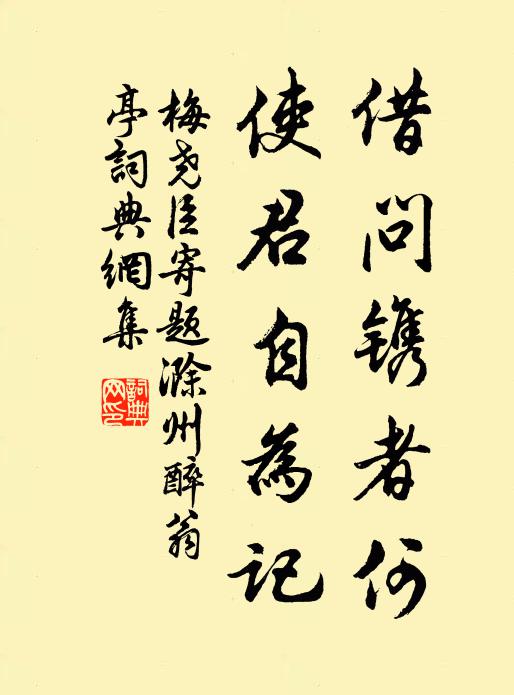 借问镌者何
使君自為记
梅尧臣寄题滁州醉翁
亭詞典網集
詞典网印